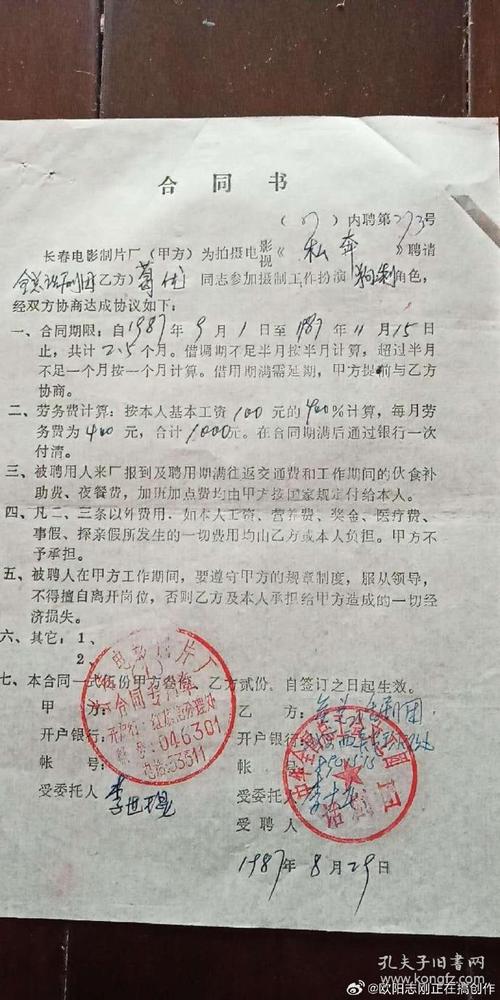 合同书
(87)内聘第273号
长春电影制片厂(甲方)为拍摄电影视《私奔》聘请
全总话剧团(乙方)葛优同志参加摄制工作扮演狗剩角色,
经双方协商达成协议如下:
一、合同期限:自1987年9月1日至1987年11月15日
止,共计2.5个月。借调期不足半月按半月计算,超过半月
不足一个月按一个月计算。借用期满需延期,甲方提前与乙方
协商。
二、劳务费计算:按本人基本工资100元的400%计算,每月劳
务费为400元,合计1000元。在合同期满后通过银行一次
付清。
三、被聘用人来厂报到及聘用期满往返交通费和工作期间的伙食补
助费、夜餐费,加班加点费均由甲方按国家规定付给本人。
四、凡二、三条以外费用.如本人工资、营养费、奖金、医疗费、
事假、探亲假所发生的一切费用均由乙方或本人负担。甲方不
予承担。
五、被聘人在甲方工作期间,要遵守甲方的规章制度,服从领导,
不得擅自离开岗位,否则乙方及本人承担给甲方造成的一切经
济损失。
六、其它:1、
2、
七、本合同一式伍份甲方叁份,乙方贰份,自签订之日起生效。
甲方:
乙方:全总话剧团
开户银行:
开户银行:
帐号:
帐号:
受委托人 李世琨
受委托人
受聘人
电影制片厂
合同专用章
046301
电话:53311
话剧团
1987年8月29日
孔夫子旧书网
@欧阳志刚正在搞创作